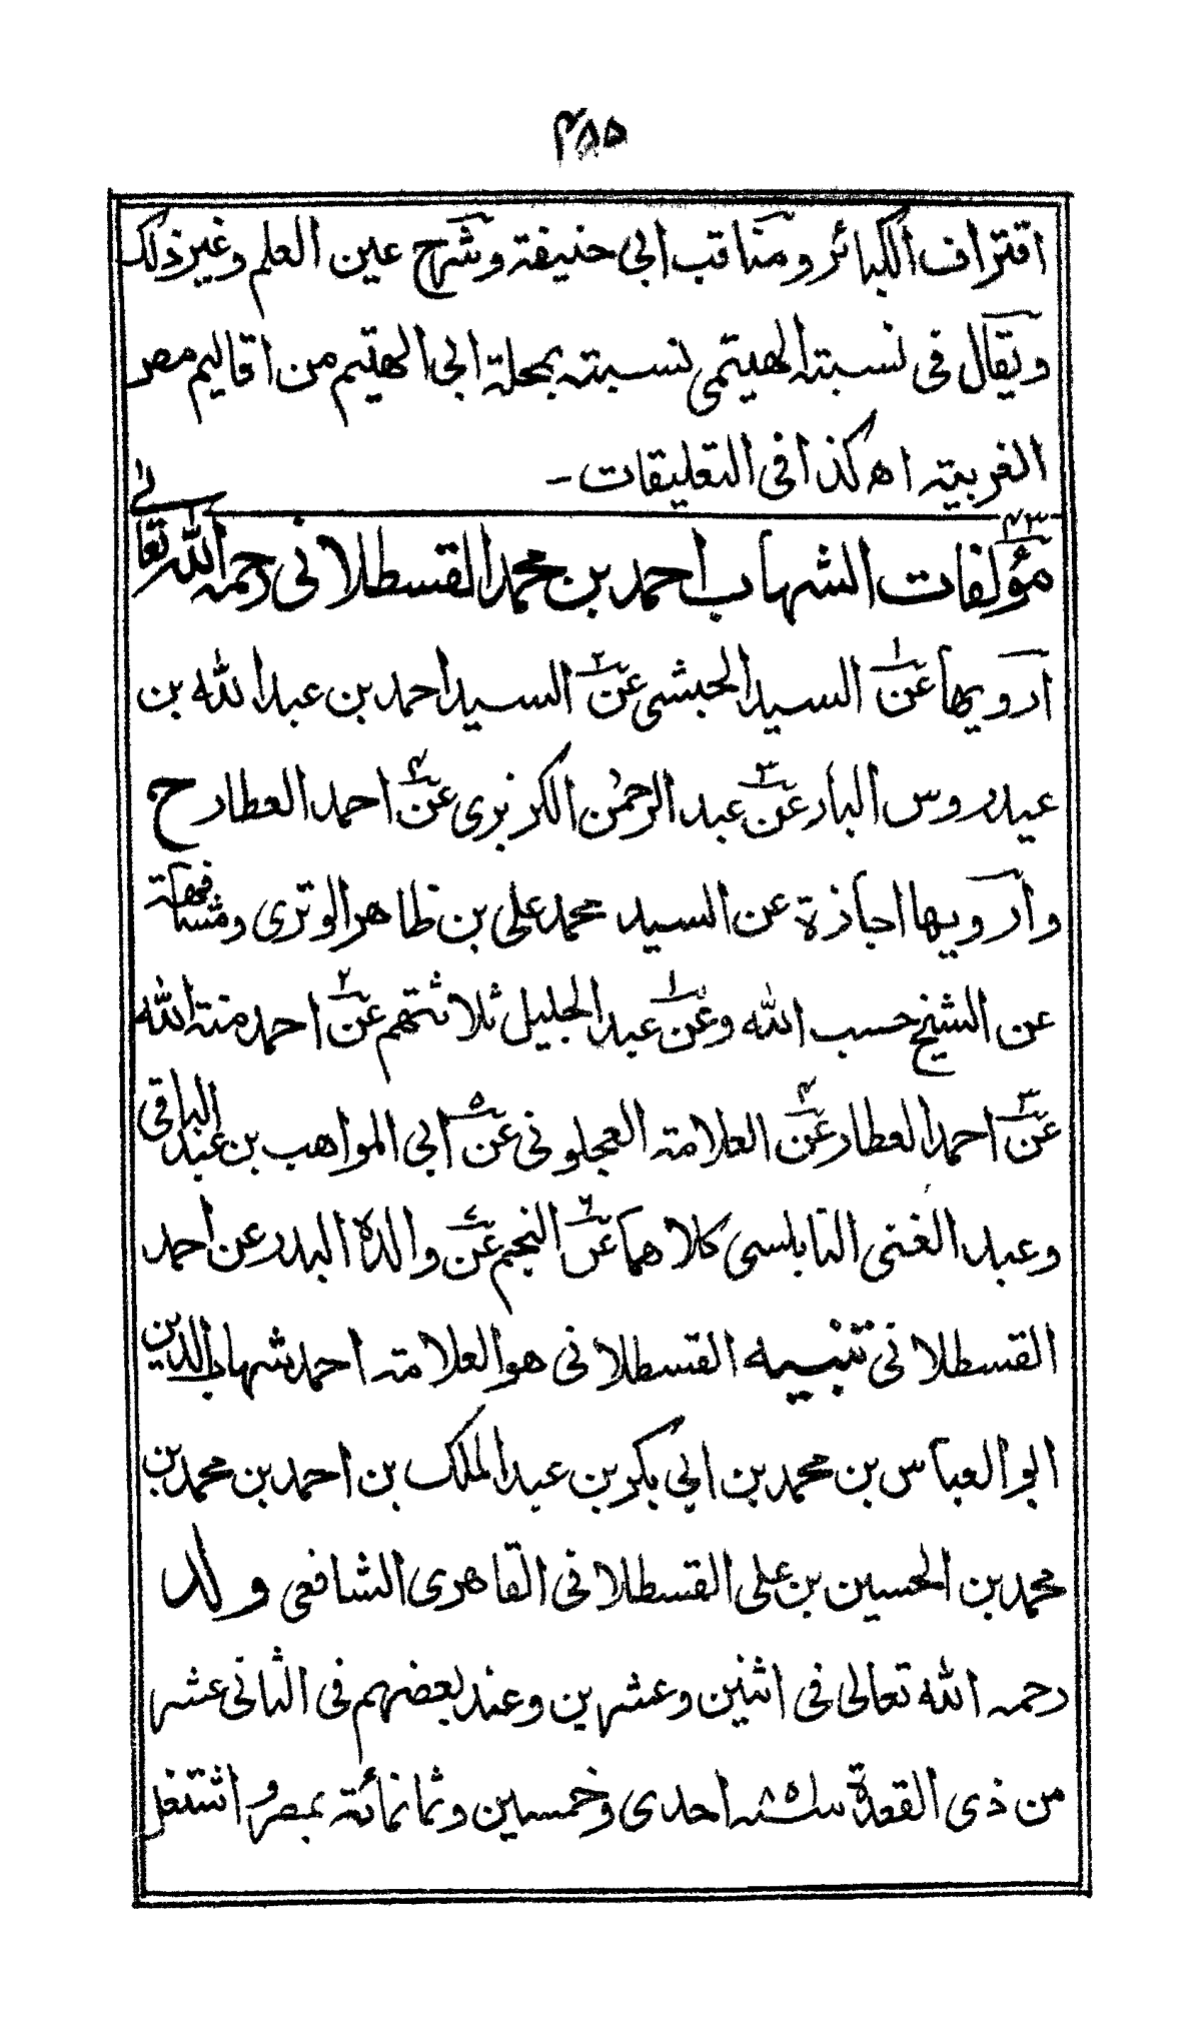 ۴۸۵
اقتراف الكبائر ومناقب ابی حنيفة وشرح عين العلم وغير ذلك
ويقال فی نسبته الهيتمی نسبته بمحلة ابی الهيتم من اقاليم مصر
الغربيته اه كذا فی التعليقات -
۴۳ مؤلفات الشهاب احمد بن محمد القسطلانی رحمه الله تعالی
ارويها عن۱ السيد الحبشی عن۲ السيد احمد بن عبد الله بن
عيدروس البار عن۳ عبد الرحمٰن الكزبری عن۴ احمد العطار ح
وارويها اجازة عن السيد محمد علی بن ظاهر الوتری ومشافهة
عن الشيخ حسب الله وعن۱ عبد الجليل ثلاثتهم عن۲ احمد منة الله
عن۳ احمد العطار عن۴ العلامته العجلونی عن۵ ابی المواهب بن عبد الباقی
وعبد الغنی النابلسی كلاهما عن۶ النجم عن۷ والده البدر عن احمد
القسطلانی تنبيه القسطلانی هو العلامته احمد شهاب الدين
ابو العباس بن محمد بن ابی بكر بن عبد الملك بن احمد بن محمد بن
محمد بن الحسين بن علی القسطلانی القاهری الشافعی ولد
رحمه الله تعالی فی اثنين وعشرين وعند بعضهم فی الثانی عشر
من ذی القعدة سنه ۸۵۱ احدی وخمسين وثمانمائة بمصر واشتغل